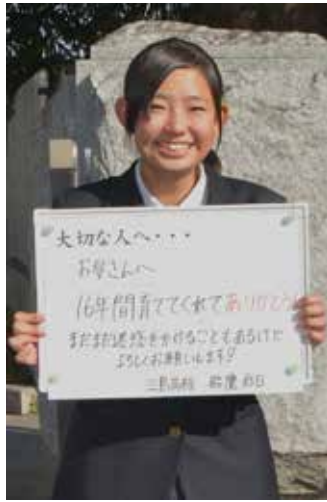 大切な人へ・・・
お母さんへ
16年間育ててくれてありがとう
まだまだ迷惑をかけることもあるけど
よろしくお願いします!
三島高校